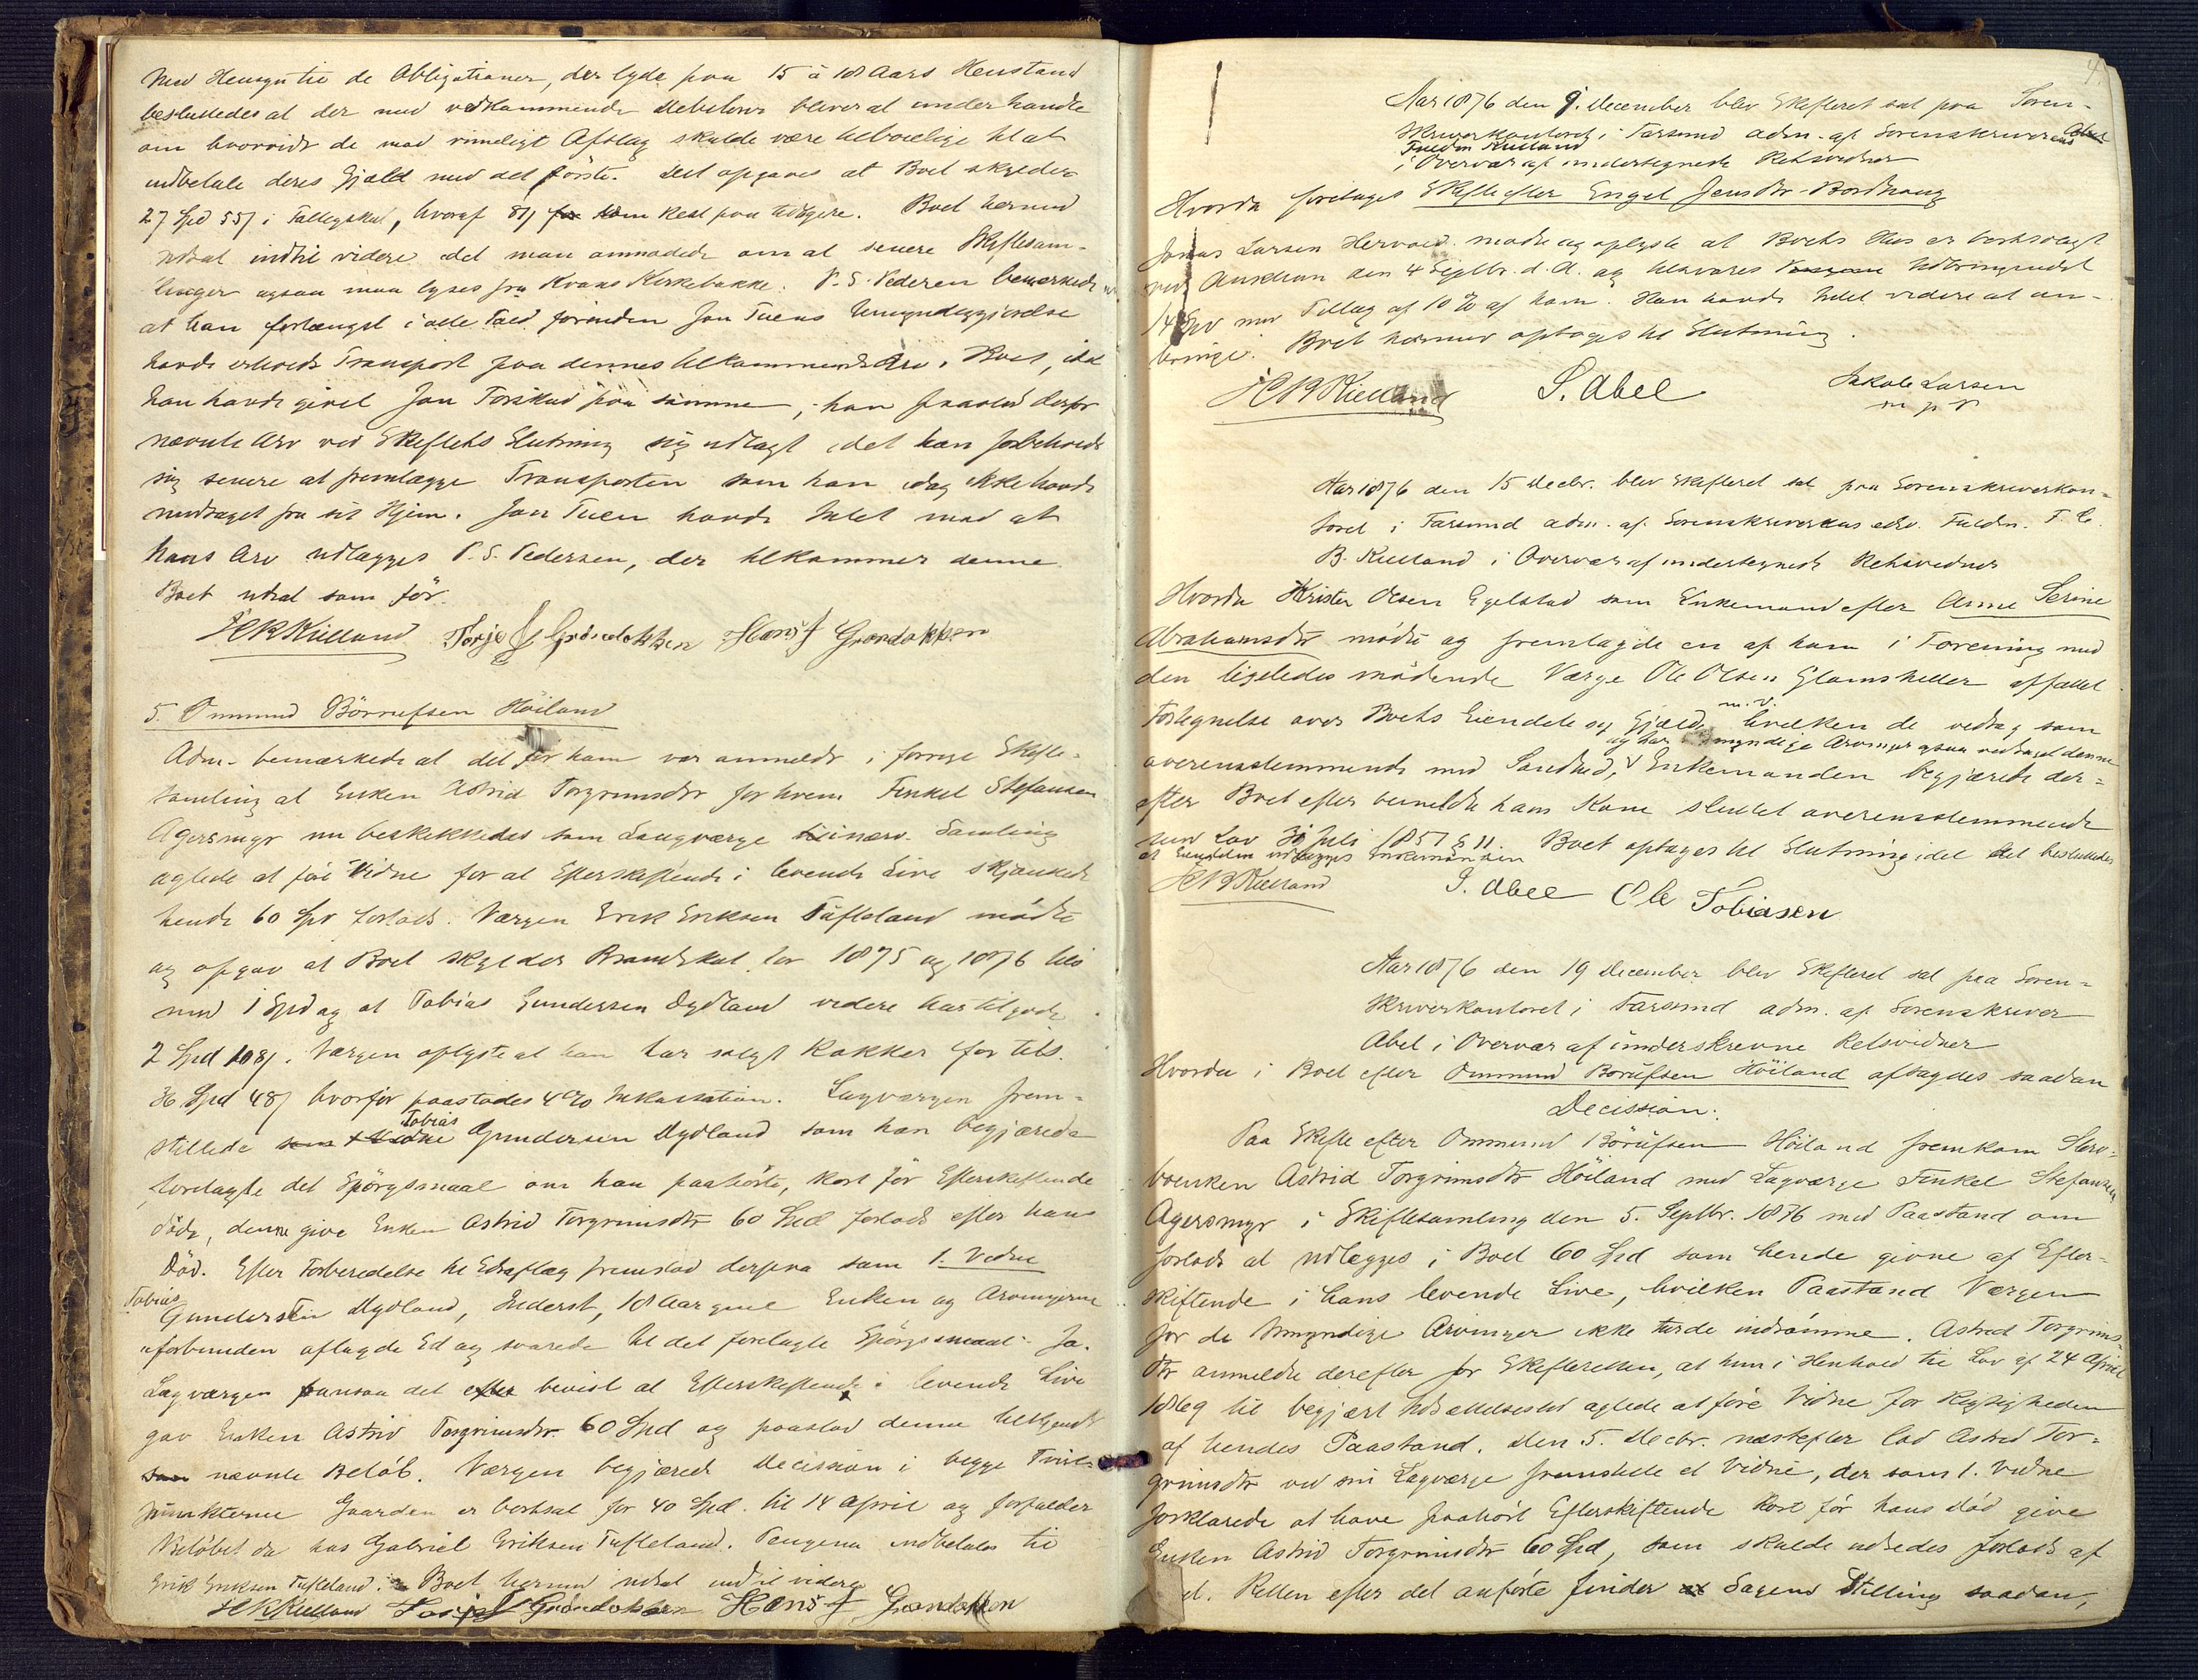 Med Hensyn til de Obligationer, der lyde paa 15 à 18 Aars Henstand
besluttedes at der med vedkommende Debitorer bliver at underhandle
om hvorvidt de mod rimeligt Afslag skulde være tilbøielige til at
indbetale deres Gjæld med det første. Det opgaves at Boet skylder
27 Spd 55 i Fattigskat, hvoraf som Rest paa tidligere. Boet hermed
udsat indtil videre idet man anmodede om at senere Skiftesam-
linger ogsaa maa lyses fra Kvaas Kirkebakke. P. S. Pedersen bemærkede
at han forlængst i alle Fald forinden Jon Tuens Umyndiggjørelse
havde erholdt Transport paa dennes tilkommende Arv i Boet, idet
han havde givet Jon Forskud paa samme, han paastod derfor
nævnte Arv ved Skiftets Slutning sig udlagt idet han forbeholdt
sig senere at fremlægge Transporten som han idag ikke havde
medtaget fra sit Hjem. Jon Tuen havde Intet mod at
hans Arv udlægges P. S. Pedersen, der tilkommer denne.
Boet udsat som før.
Kielland Torje J Grøndokken Hans J Grøndokken
5. Ommund Børrufsen Høiland
Adm. bemærkede at det for ham var anmeldt i forrige Skifte-
samling at Enken Astrid Torgrimsdtr for hvem Tinkel Stefansen
Agersmyr nu beskikkedes som Laugværge i nærv. Samling
agtede at føre Vidne for at Efterskiftende i levende Live skjænkede
hende 60 Spd forlods. Værgen Erik Eriksen Tufteland mødte
og opgav at Boet skylder Brandskat for 1875 og 1876 tils
med 1 Spd og at Tobias Gundersen Dydland videre har tilgode
2 Spd 108. Værgen oplyste at han har solgt Rokker for tils.
36 Spd 48 hvorfor paastodes 4% Inkassation. Lagværgen frem-
stillede som Vidne Tobias Gundersen Dydland som han begjærede
forelagte det Spørgsmaal om han paahørte, kort før Efterskiftende
døde, denne give Enken Astrid Torgrimsdtr 60 Spd forlods efter hans
Død. Efter Forberedelse til Edsaflæg fremstod derpaa som 1. Vidne
Tobias
Gundersen Dydland, Inderst, 18 Aar gml Enken og Arvingerne
uforbunden aflagde Ed og svarede til det forelagte Spørgsmaal: Ja.
Lagværgen fansaa det bevist at Efterskiftende i levende Live
gav Enken Astrid Torgrimsdtr 60 Spd og paastod denne
nævnte Beløb. Værgen begjærede Decission i begge Tviste-
punkterne Gaarden er bortsat for 40 Spd. til 14 April og forfalder
Beløbet da hos Gabriel Eriksen Tufteland. Pengene indbetales til
Erik Eriksen Tufteland. Boet hermed udsat indtil videre
Kielland Torje J Grøndokken Hans J Grøndokken
Aar 1876 den 9. December blev Skifteret sat paa Soren-
skriverkontoret i Farsund adm. af Sorenskriverens
Fuldm Kielland
i Overvær af undertegnede Retsvidner
Hvorda foretages Skifte efter Engel Jensdtr Bordhaug
Jonas Larsen Hervold mødte og oplyste at Boets Hus er bortsolgt
ved Auktion den 4 Septbr. d. A. og Udbringendet
14 Spd med Tillæg af 10 % af ham. Han havde Intet videre at an-
bringe. Boet hermed optages til Slutning.
Kielland S. Abel Jakob Larsen
m p P
Aar 1876 den 15 Decbr. blev Skifteret sat paa Sorenskriverkon-
toret i Farsund adm. af Sorenskriverens edsv. Fuldm. T. C.
B. Kielland i Overvær af undertegnede Retsvidner
Hvorda Krister Olsen Egelstad som Enkemand efter Anne Serine
Abrahamsdtr mødte og fremlagde en af ham i Forening med
den ligeledes mødende Værge Ole Olsen Glamsheller affattet
Fortegnelse over Boets Eiendele og Gjæld m.V. hvilken de vedtog som
og har myndige Arvinger ogsaa vedtaget denne
overensstemmende med Sandhed, Enkemanden begjærede der-
efter Boet efter bemeldte hans Kone sluttet overensstemmende
med Lov 30 Juli 1851 § 11. Boet optages til Slutning idet det besluttedes
at Eiendelen udlægges Enkemanden
Kielland S. Abel Ole Tobiasen
Aar 1876 den 19 December blev Skifteret sat paa Soren-
skriverkontoret i Farsund adm. af Sorenskriver
Abel i Overvær af underskrevne Retsvidner
Hvorda i Boet efter Ommund Børufsen Høiland afsagdes saadan
Decission:
Paa Skifte efter Ommund Børufsen Høiland fremkom Sterv-
boenken Astrid Torgrimsdtr Høiland med Lagværge Tinkel Stefansen
Agersmyr i Skiftesamling den 5. Septbr. 1876 med Paastand om
forlods at udlægges i Boet 60 Spd som hende givne af Efter-
skiftende i hans levende Live, hvilken Paastand Værgen
for de Umyndige Arvinger ikke turde indrømme. Astrid Torgrims-
dtr anmeldte derefter for Skifteretten, at hun i Henhold til Lov af 24 April
1869 til begjært Udsættelsestid agtede at føre Vidne for Rigtigheden
af hendes Paastand. Den 5. Decbr. næstefter lod Astrid Tor-
grimsdtr ved sin Lagværge fremstille et Vidne, der som 1. Vidne
forklarede at have paahørt Efterskiftende kort før hans Død give
Enken Astrid Torgrimsdtr 60 Spd, som skulde udredes forlods af
Retten efter det anførte finder Sagens Stilling saadan,